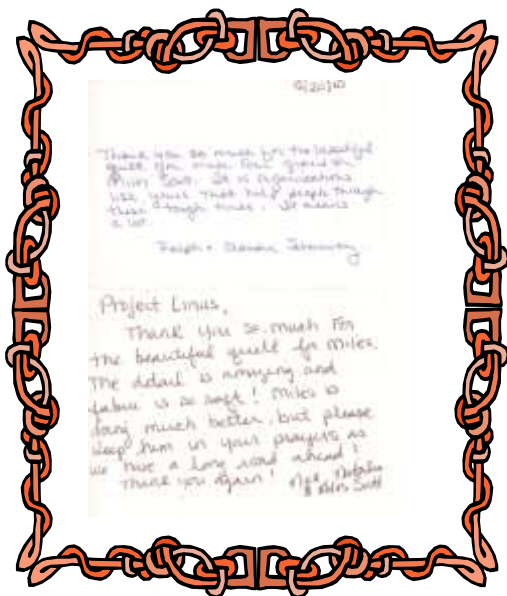 Thank you so much for the beautiful
quilt you made our grandson
Miles Scott. It is organizations
like yours that help people through
these tough times. It means
a lot.
Ralph &
Project Linus,
Thank you so much for
the beautiful quilt for Miles.
The detail is amazing and
fabric is so soft! Miles is
doing much better, but please
keep him in your prayers as
we have a long road ahead!
Thank you again!
Natalie
& Miles Scott